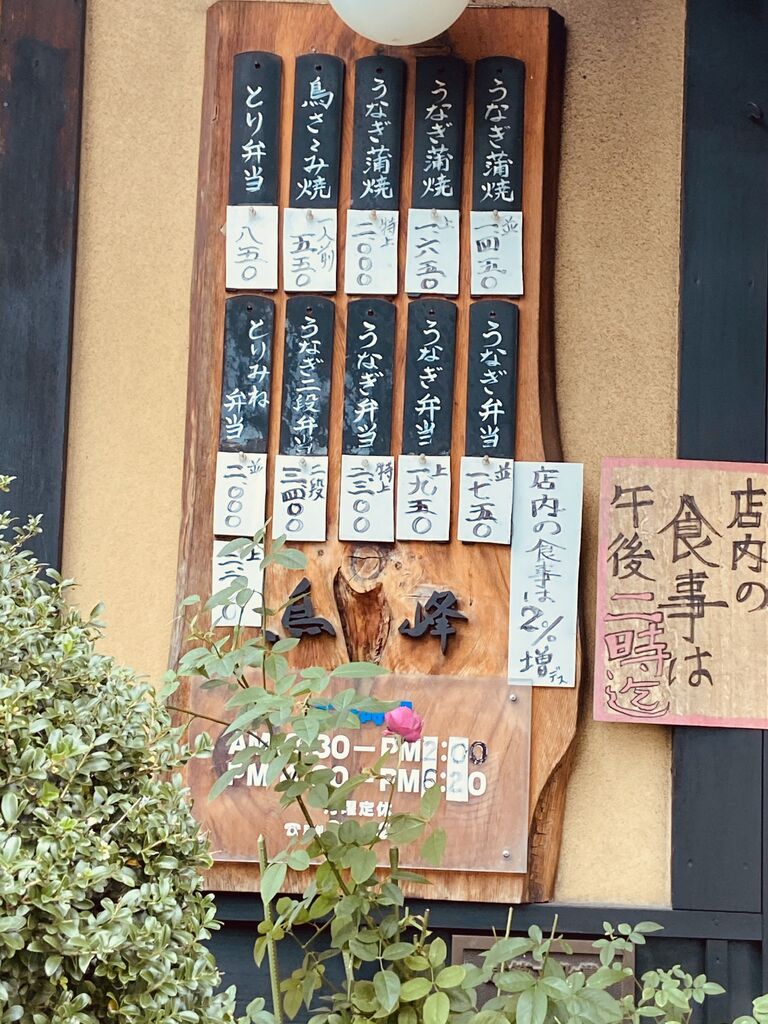 うなぎ蒲焼
並
一、四五〇
うなぎ蒲焼
上
一、六五〇
うなぎ蒲焼
特上
二、〇〇〇
鳥さゝみ焼
五五〇
とり弁当
八五〇
うなぎ弁当
並
一七五〇
うなぎ弁当
上
一九五〇
うなぎ弁当
特上
二三〇〇
うなぎ二段弁当
二段
三四〇〇
とりみね
弁当
並
二〇〇〇
上
鳥峰
店内の食事は2%増デス
店内の
食事は
午後二時迄
30—PM2:00
PM6:20
定休